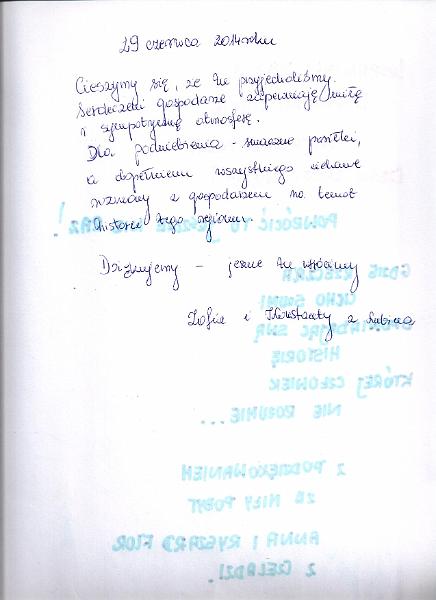 29 czerwca 2014 roku
Cieszymy się, że tu przyjechaliśmy.
Serdeczni gospodarze zapewniają miłą
i sympatyczną atmosferę.
Dla podniebienia - smaczne posiłki,
a dopełnieniem wszystkiego ciekawe
rozmowy z gospodarzem na temat
historii tego regionu.
Dziękujemy - jeszcze tu wrócimy
Zofia i Konstanty z Lubina
POWRÓCIĆ TU JESZCZE RAZ!
GDZIE RZECZKA
CICHO SZUMI
SWĄ
HISTORIĘ
KTÓREJ CZŁOWIEK
NIE ROZUMIE...
Z PODZIĘKOWANIEM
ZA MIŁY POBYT
ANNA I RYSZARD FLOR
Z CZELADZI.